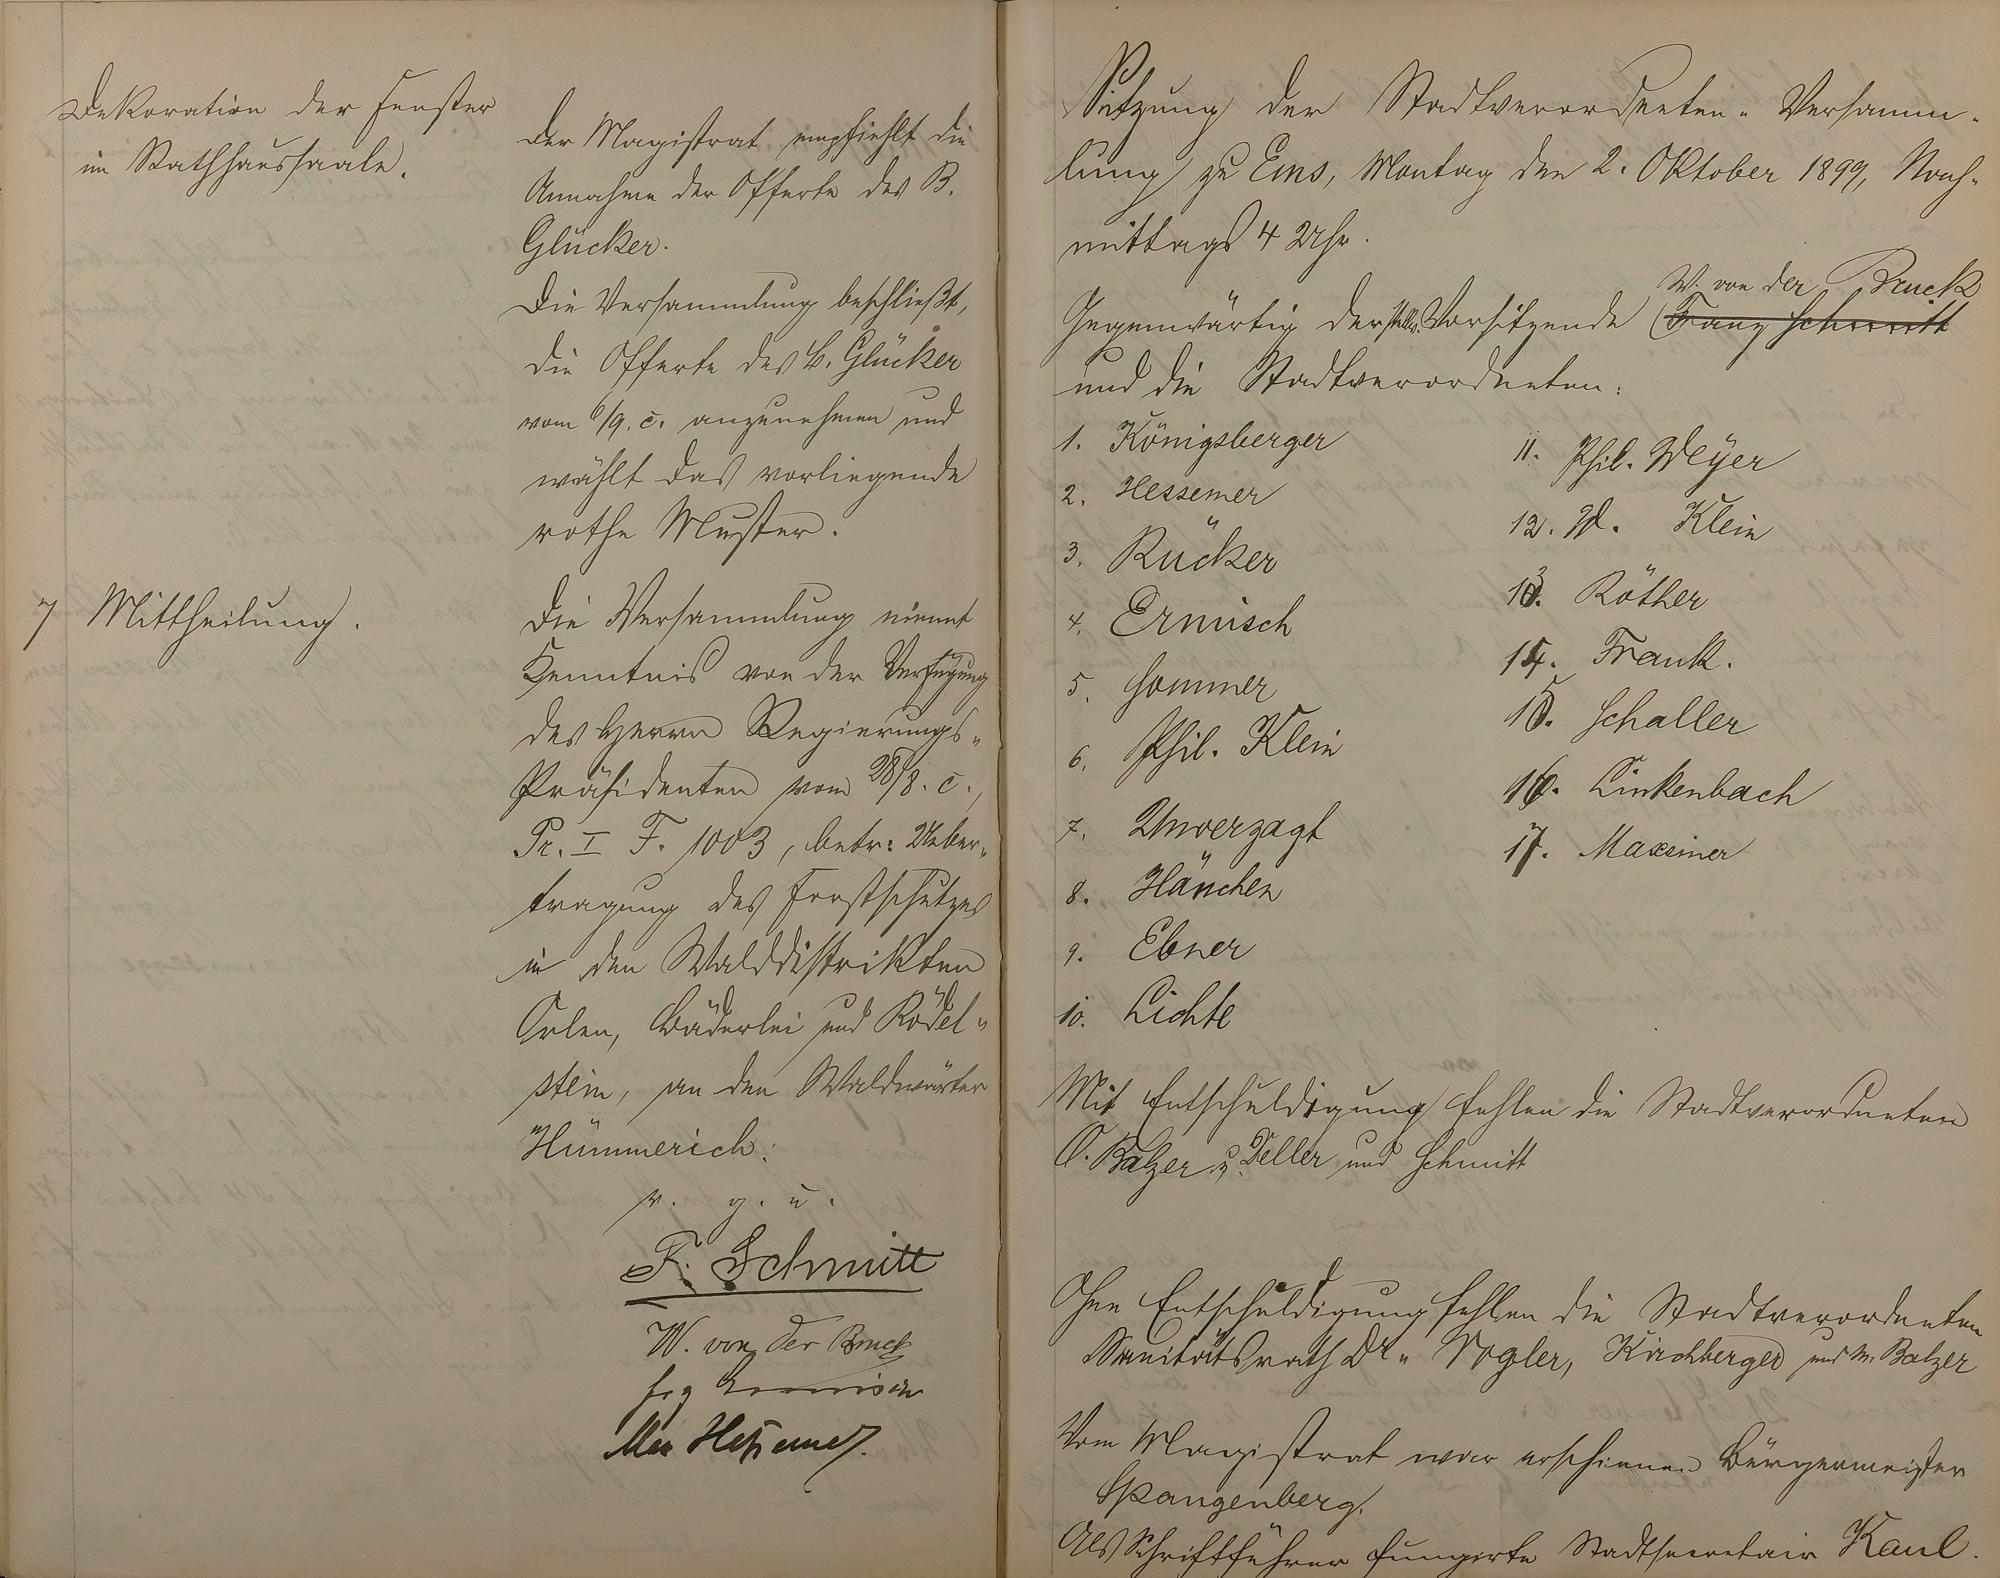 Dekoration der Fenster
im Rathhaussaale.
Der Magistrat empfiehlt die
Annahme der Offerte des B.
Glücker.
Die Versammlung beschließt,
die Offerte des B. Glücker
vom 6/9. c. anzunehmen und
wählt das vorliegende
rothe Muster.
7 Mittheilung.
Die Versammlung nimmt
Kenntnis von der Verfügung
des Herrn Regierungs-
Präsidenten vom 28/8. c.,
Pr. I F. 1003, betr: Ueber-
tragung des Forstschutzes
in den Walddistrikten
Orlen, Bäderlei und Rödel-
stein, an den Waldwärter
Hümmerich.
v. g. u.
F. Schmitt
W. von der Bruck
Max Hessemer.
Sitzung der Stadtverordneten-Versamm-
lung zu Ems, Montag den 2. Oktober 1899, Nach-
mittags 4 Uhr.
W. von der Bruck
Gegenwärtig der stellv. Vorsitzende Franz Schmitt
und die Stadtverordneten:
1. Königsberger
2. Hessemer
3. Rücker
4. Ernisch
5. Sommer
6. Phil. Klein
7. Unverzagt
8. Hänchen
9. Ebner
10. Lichte
11. Phil. Weyer
12. W. Klein
13. Röther
14. Frank.
15. Schaller
16. Linkenbach
17. Maxeiner
Mit Entschuldigung fehlen die Stadtverordneten
O. Balzer u. Deller und Schmitt
Ohne Entschuldigung fehlen die Stadtverordneten
Sanitätsrath Dr. Vogler, Kirchberger und M. Balzer
Vom Magistrat war erschienen Bürgermeister
Spangenberg.
Als Schriftführer fungirte Stadtsecretair Kaul.